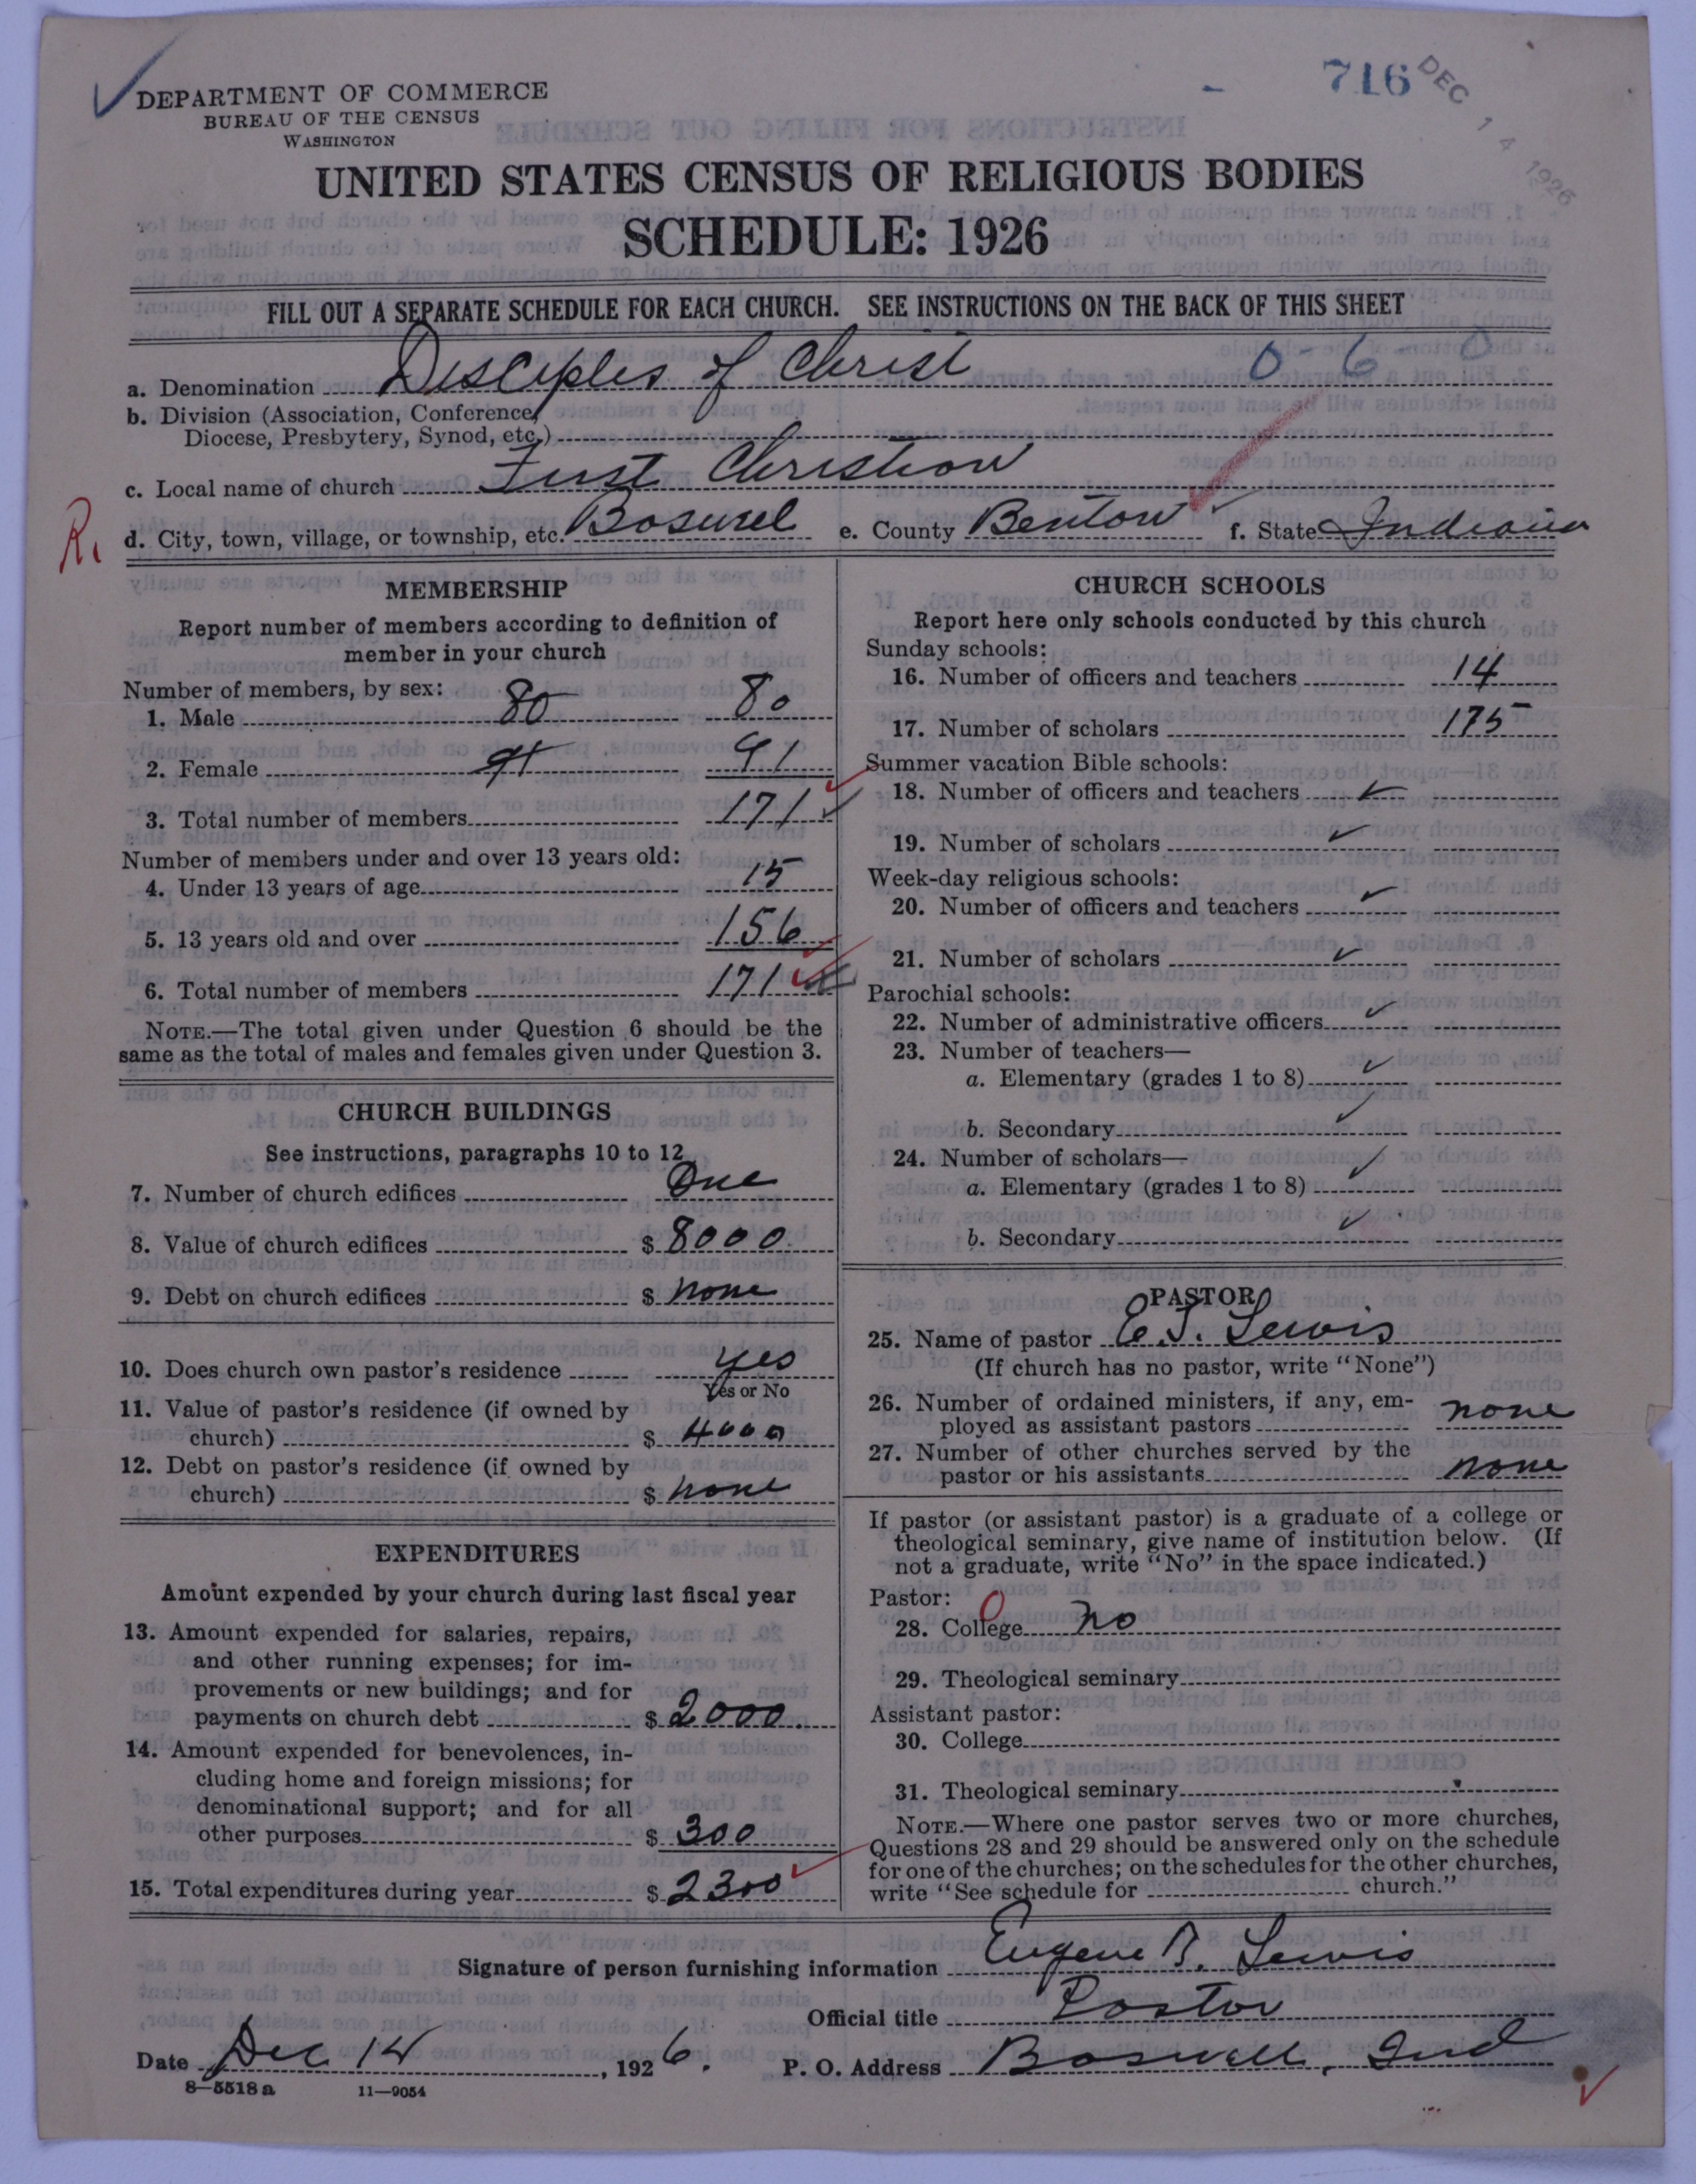 716
DEC 14 1926
DEPARTMENT OF COMMERCE
BUREAU OF THE CENSUS
WASHINGTON
UNITED STATES CENSUS OF RELIGIOUS BODIES
SCHEDULE: 1926
FILL OUT A SEPARATE SCHEDULE FOR EACH CHURCH. SEE INSTRUCTIONS ON THE BACK OF THIS SHEET
a. Denomination Disciples of Christ 0-6-0
b. Division (Association, Conference,
Diocese, Presbytery, Synod, etc.)
c. Local name of church First Christian
d. City, town, village, or township, etc. Boswell e. County Benton f. State Indiana
MEMBERSHIP
Report number of members according to definition of
member in your church
Number of members, by sex:
1. Male 80 80
2. Female 91 91
3. Total number of members 171
Number of members under and over 13 years old:
4. Under 13 years of age 15
5. 13 years old and over 156
6. Total number of members 171
NOTE.—The total given under Question 6 should be the
same as the total of males and females given under Question 3.
CHURCH BUILDINGS
See instructions, paragraphs 10 to 12
7. Number of church edifices One
8. Value of church edifices $ 8000
9. Debt on church edifices $ none
10. Does church own pastor's residence yes
Yes or No
11. Value of pastor's residence (if owned by
church) $ 4000
12. Debt on pastor's residence (if owned by
church) $ none
EXPENDITURES
Amount expended by your church during last fiscal year
13. Amount expended for salaries, repairs,
and other running expenses; for im-
provements or new buildings; and for
payments on church debt $ 2000.
14. Amount expended for benevolences, in-
cluding home and foreign missions; for
denominational support; and for all
other purposes $ 300
15. Total expenditures during year $ 2300
CHURCH SCHOOLS
Report here only schools conducted by this church
Sunday schools:
16. Number of officers and teachers 14
17. Number of scholars 175
Summer vacation Bible schools:
18. Number of officers and teachers
19. Number of scholars
Week-day religious schools:
20. Number of officers and teachers
21. Number of scholars
Parochial schools:
22. Number of administrative officers
23. Number of teachers—
a. Elementary (grades 1 to 8)
b. Secondary
24. Number of scholars—
a. Elementary (grades 1 to 8)
b. Secondary
PASTOR
25. Name of pastor E. J. Lewis
(If church has no pastor, write "None")
26. Number of ordained ministers, if any, em-
ployed as assistant pastors none
27. Number of other churches served by the
pastor or his assistants none
If pastor (or assistant pastor) is a graduate of a college or
theological seminary, give name of institution below. (If
not a graduate, write "No" in the space indicated.)
Pastor: 0
28. College no
29. Theological seminary
Assistant pastor:
30. College
31. Theological seminary
NOTE.—Where one pastor serves two or more churches,
Questions 28 and 29 should be answered only on the schedule
for one of the churches; on the schedules for the other churches,
write "See schedule for church."
Signature of person furnishing information Eugene Lewis
Official title Pastor
Date Dec 14, 1926. P. O. Address Boswell, Ind
8—5518 a 11—9054